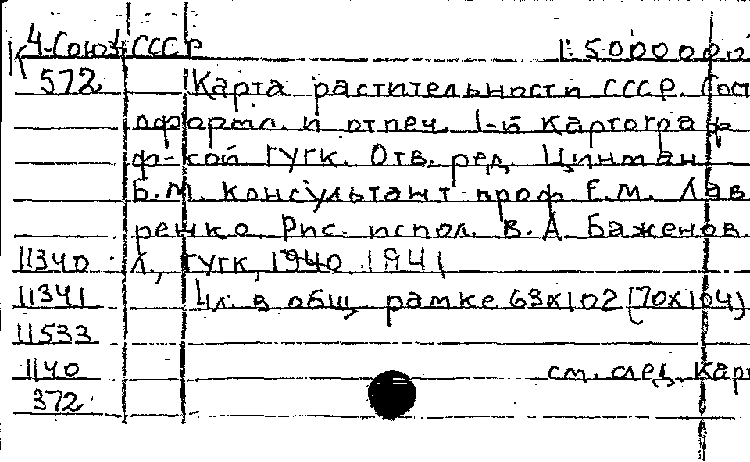 4-Союз СССР 1:5000000
572 Карта растительности СССР. Сост
оформл. и отпеч. 1-й картограф
ф-кой ГУГК. Отв. ред. Цинман
Б.М. Консультант проф Е.М. Лав
ренко. Рис. испол. В.А. Баженов.
11340 Л., ГУГК, 1940 1941
11341 4л. в общ. рамке 63х102 (70х104)
11533
1140 см. след. кар
372